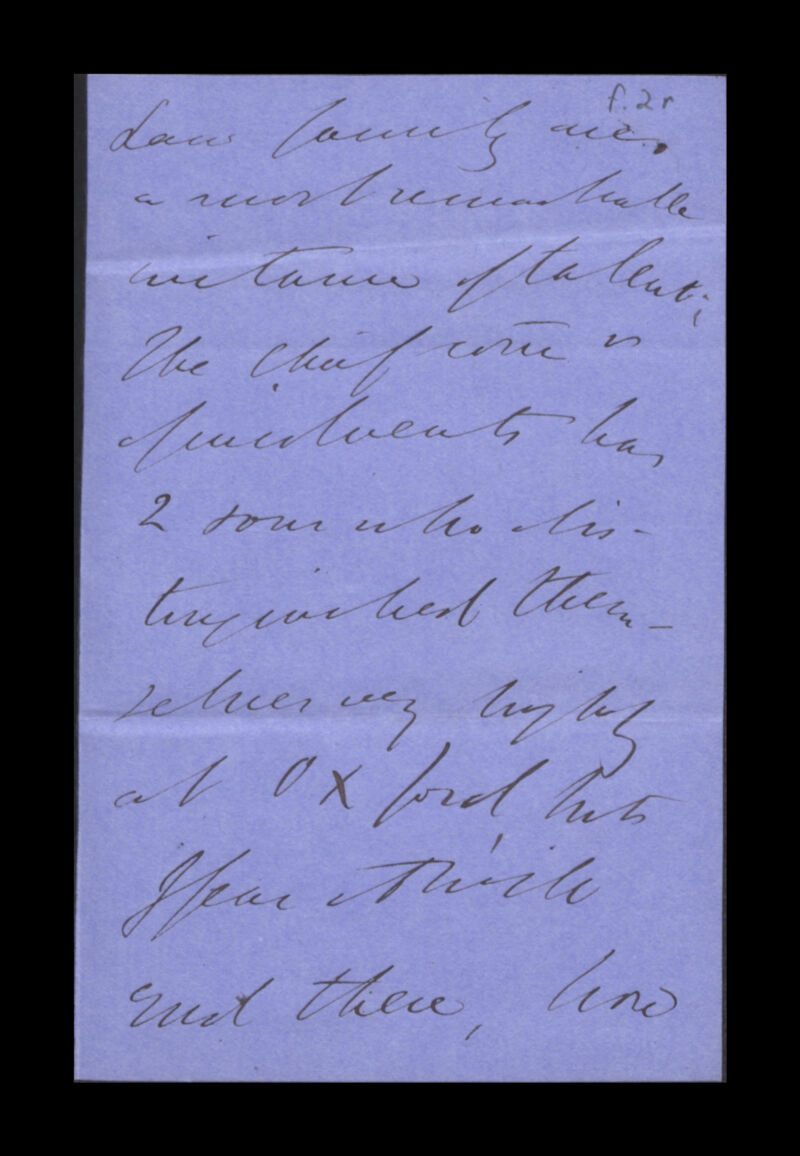 f. 2r
Law family are,
a most remarkable
instance of talent;
The Chief comr is
of insolvents has
2 sons who dis-
tinguished them-
selves very highly
at OXford, but
I fear it will
end there, Lord